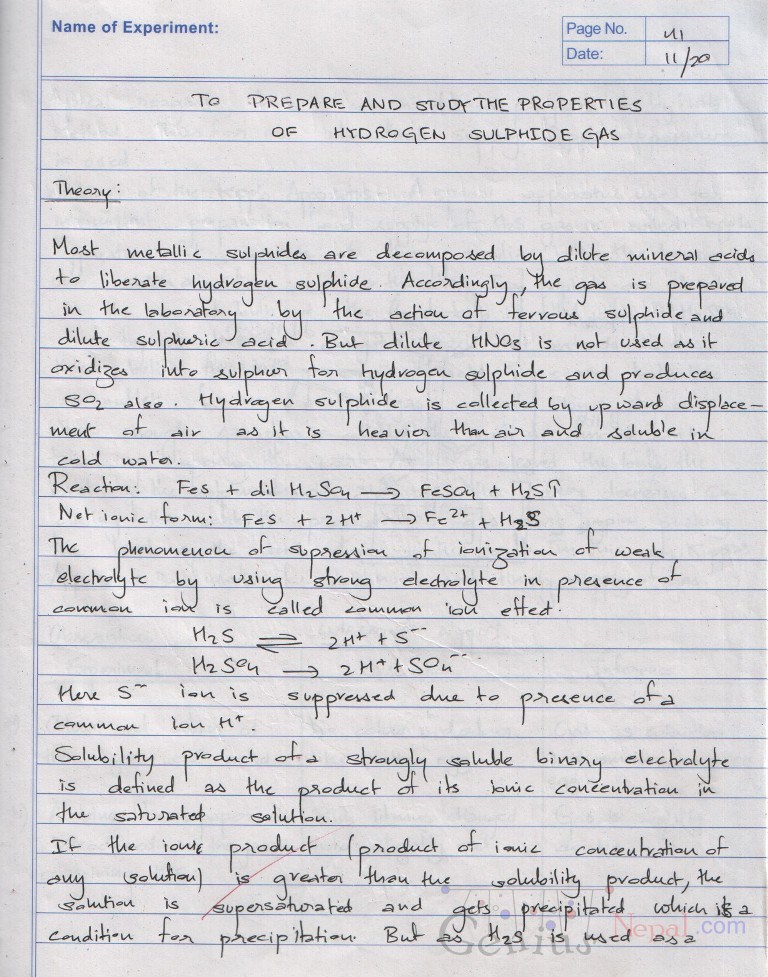 Name of Experiment:
Page No. 41
Date: 11/20
TO PREPARE AND STUDY THE PROPERTIES
OF HYDROGEN SULPHIDE GAS
Theory:
Most metallic sulphides are decomposed by dilute mineral acids
to liberate hydrogen sulphide. Accordingly, the gas is prepared
in the laboratory by the action of ferrous sulphide and
dilute sulphuric acid. But dilute HNO3 is not used as it
oxidizes into sulphur for hydrogen sulphide and produces
SO2 also. Hydrogen sulphide is collected by upward displace-
ment of air as it is heavier than air and soluble in
cold water.
Reaction: FeS + dil H2SO4 → FeSO4 + H2S↑
Net ionic form: FeS + 2H+ → Fe2+ + H2S
The phenomenon of supression of ionization of weak
electrolyte by using strong electrolyte in presence of
common ion is called common ion effect.
H2S ⇌ 2H+ + S--
H2SO4 → 2H+ + SO4--
Here S-- ion is suppressed due to presence of a
common ion H+.
Solubility product of a strongly soluble binary electrolyte
is defined as the product of its ionic concentration in
the saturated solution.
If the ionic product (product of ionic concentration of
any solution) is greater than the solubility product, the
solution is supersaturated and gets precipitated which is a
condition for precipitation. But as H2S is used as a
Genius Nepal.com